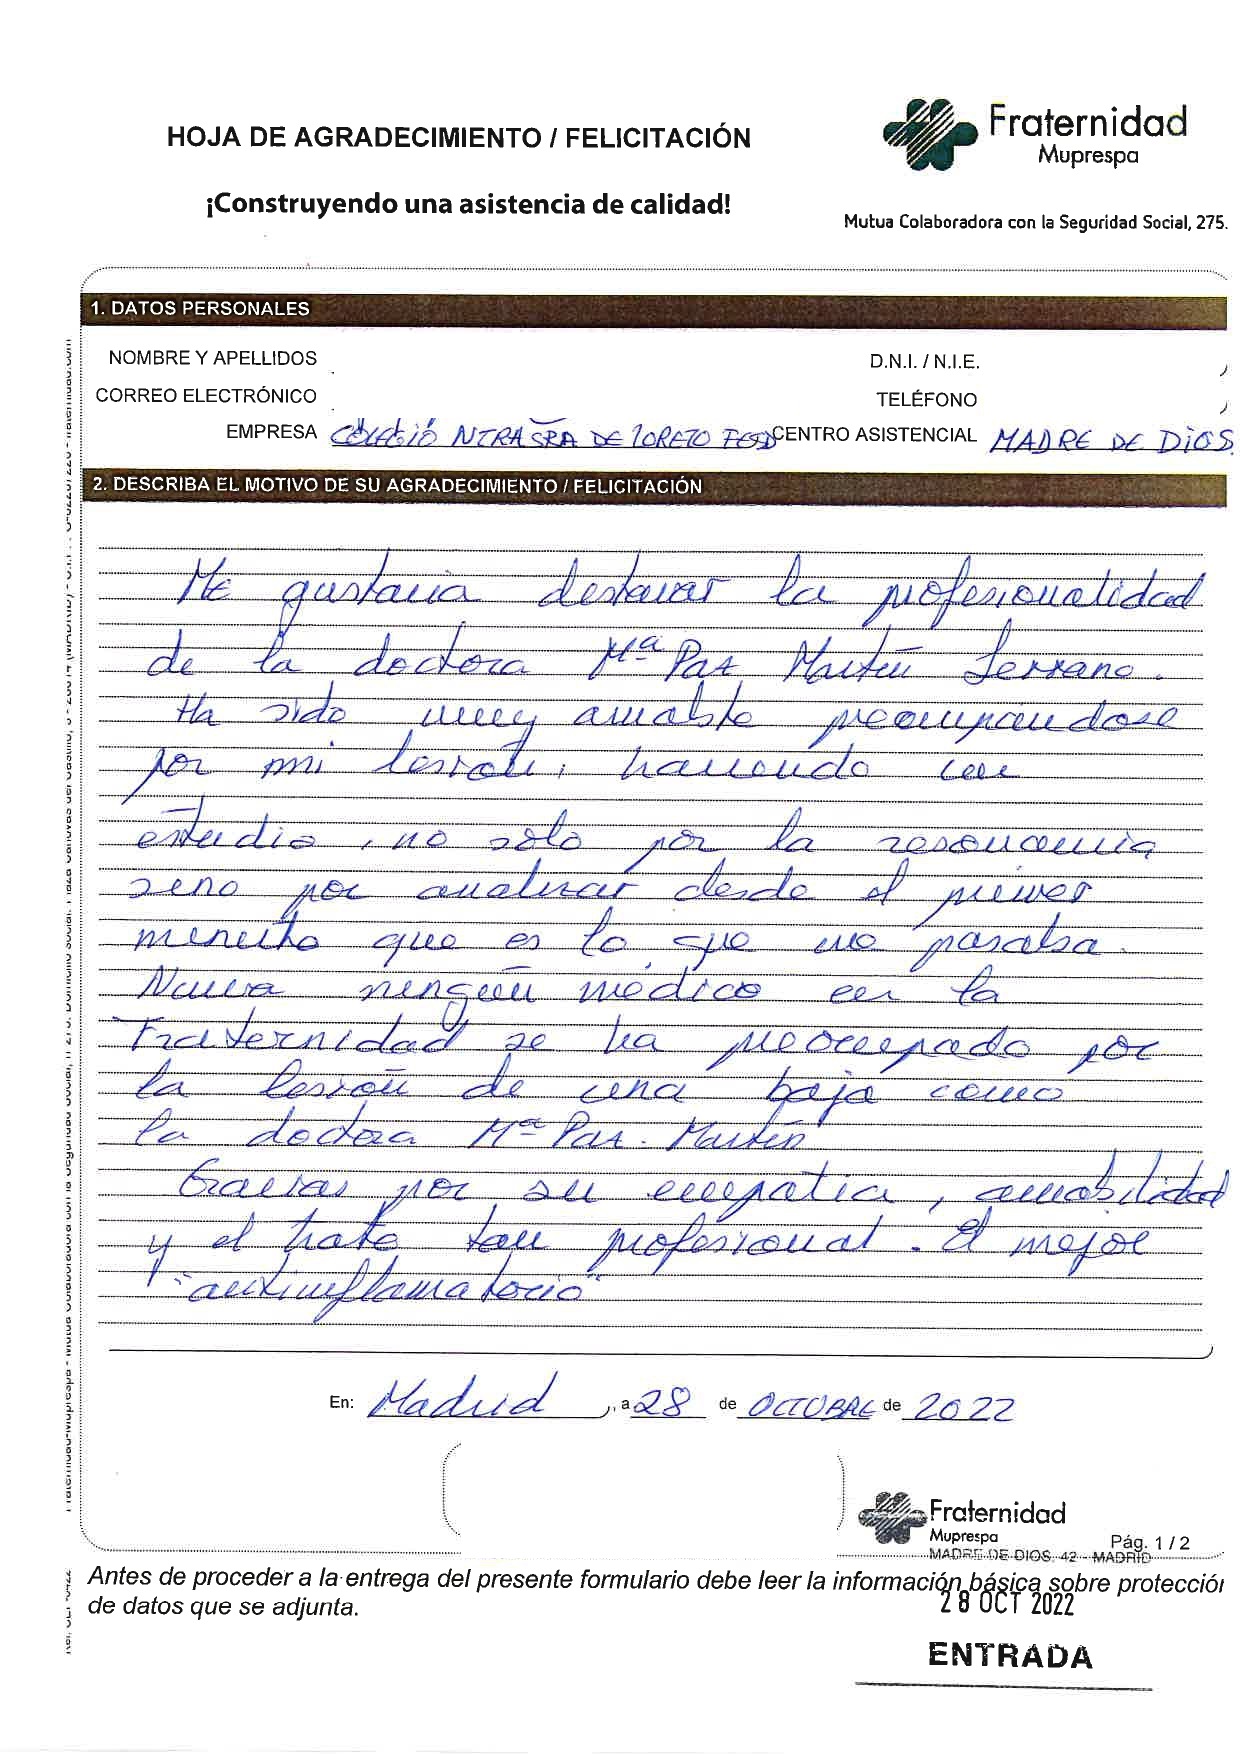 HOJA DE AGRADECIMIENTO / FELICITACIÓN
¡Construyendo una asistencia de calidad!
Fraternidad
Muprespa
Mutua Colaboradora con la Seguridad Social, 275.
1. DATOS PERSONALES
NOMBRE Y APELLIDOS D.N.I. / N.I.E.
CORREO ELECTRÓNICO TELÉFONO
EMPRESA COLEGIO NTRA SRA DE LORETO FESD CENTRO ASISTENCIAL MADRE DE DIOS
2. DESCRIBA EL MOTIVO DE SU AGRADECIMIENTO / FELICITACIÓN
Me gustaria destacar la profesionalidad
de la doctora Mª Paz Martín Serrano.
Ha sido muy amable preocupandose
por mi lesión, haciendo un
estudio, no solo por la resonancia
sino por analizar desde el primer
minuto que es lo que me pasaba.
Nunca ningún médico en la
Fraternidad se ha preocupado por
la lesión de una baja como
la doctora Mª Paz. Martín
Gracias por su empatia, amabilidad
y el trato tan profesional. El mejor
"antiinflamatorio"
En: Madrid, a 28 de OCTUBRE de 2022
Fraternidad
Muprespa
Pág. 1 / 2
MADRE DE DIOS, 42 - MADRID
Antes de proceder a la entrega del presente formulario debe leer la información básica sobre protección
de datos que se adjunta.
28 OCT 2022
ENTRADA